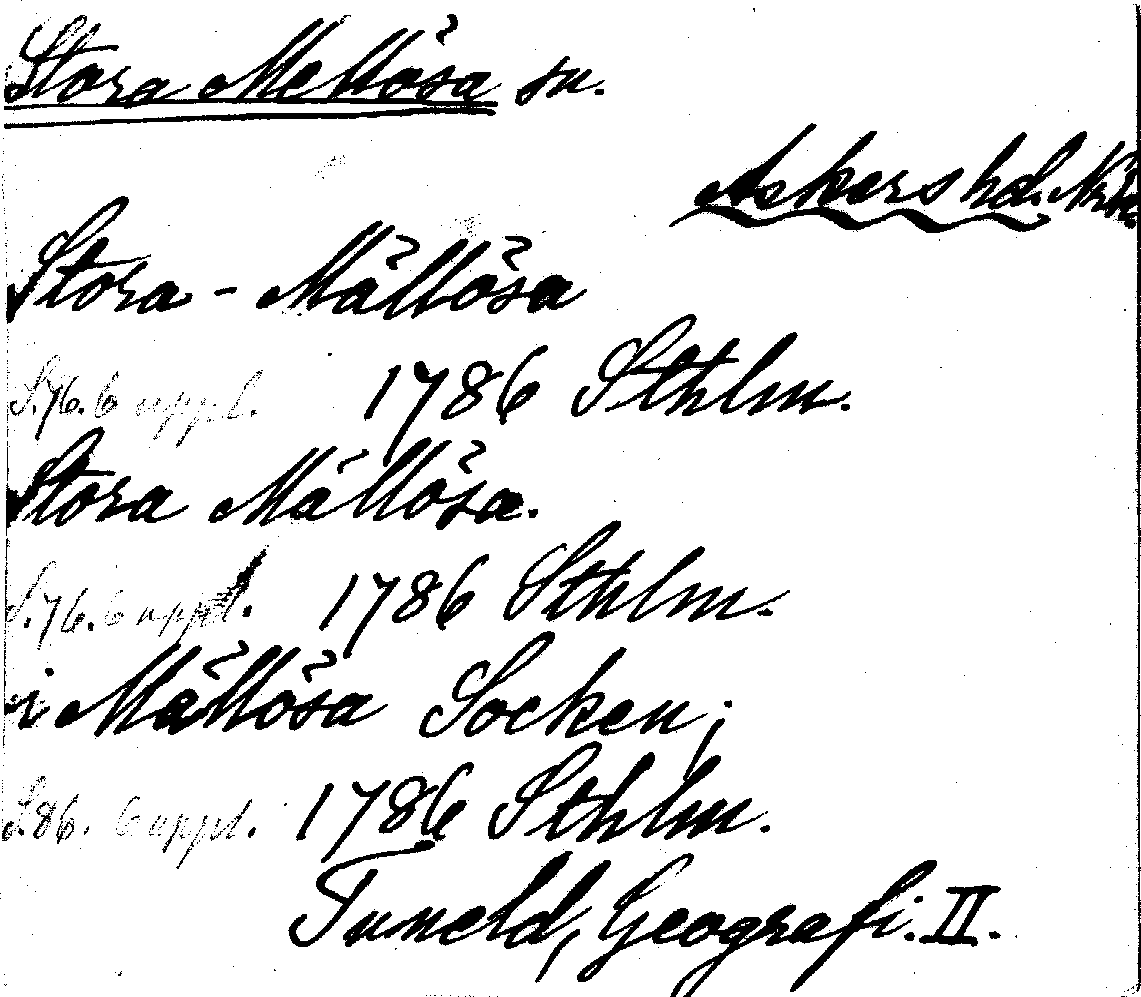 Stora Mellösa sn.
Askers hd. Nke
Stora - Mällösa
S.76. 6 uppl. 1786 Sthlm.
Stora Mällösa.
S.76. 6 uppl. 1786 Sthlm.
i Mällösa Socken;
S.86. 6 uppl. 1786 Sthlm.
Tuneld, Geografi. II.